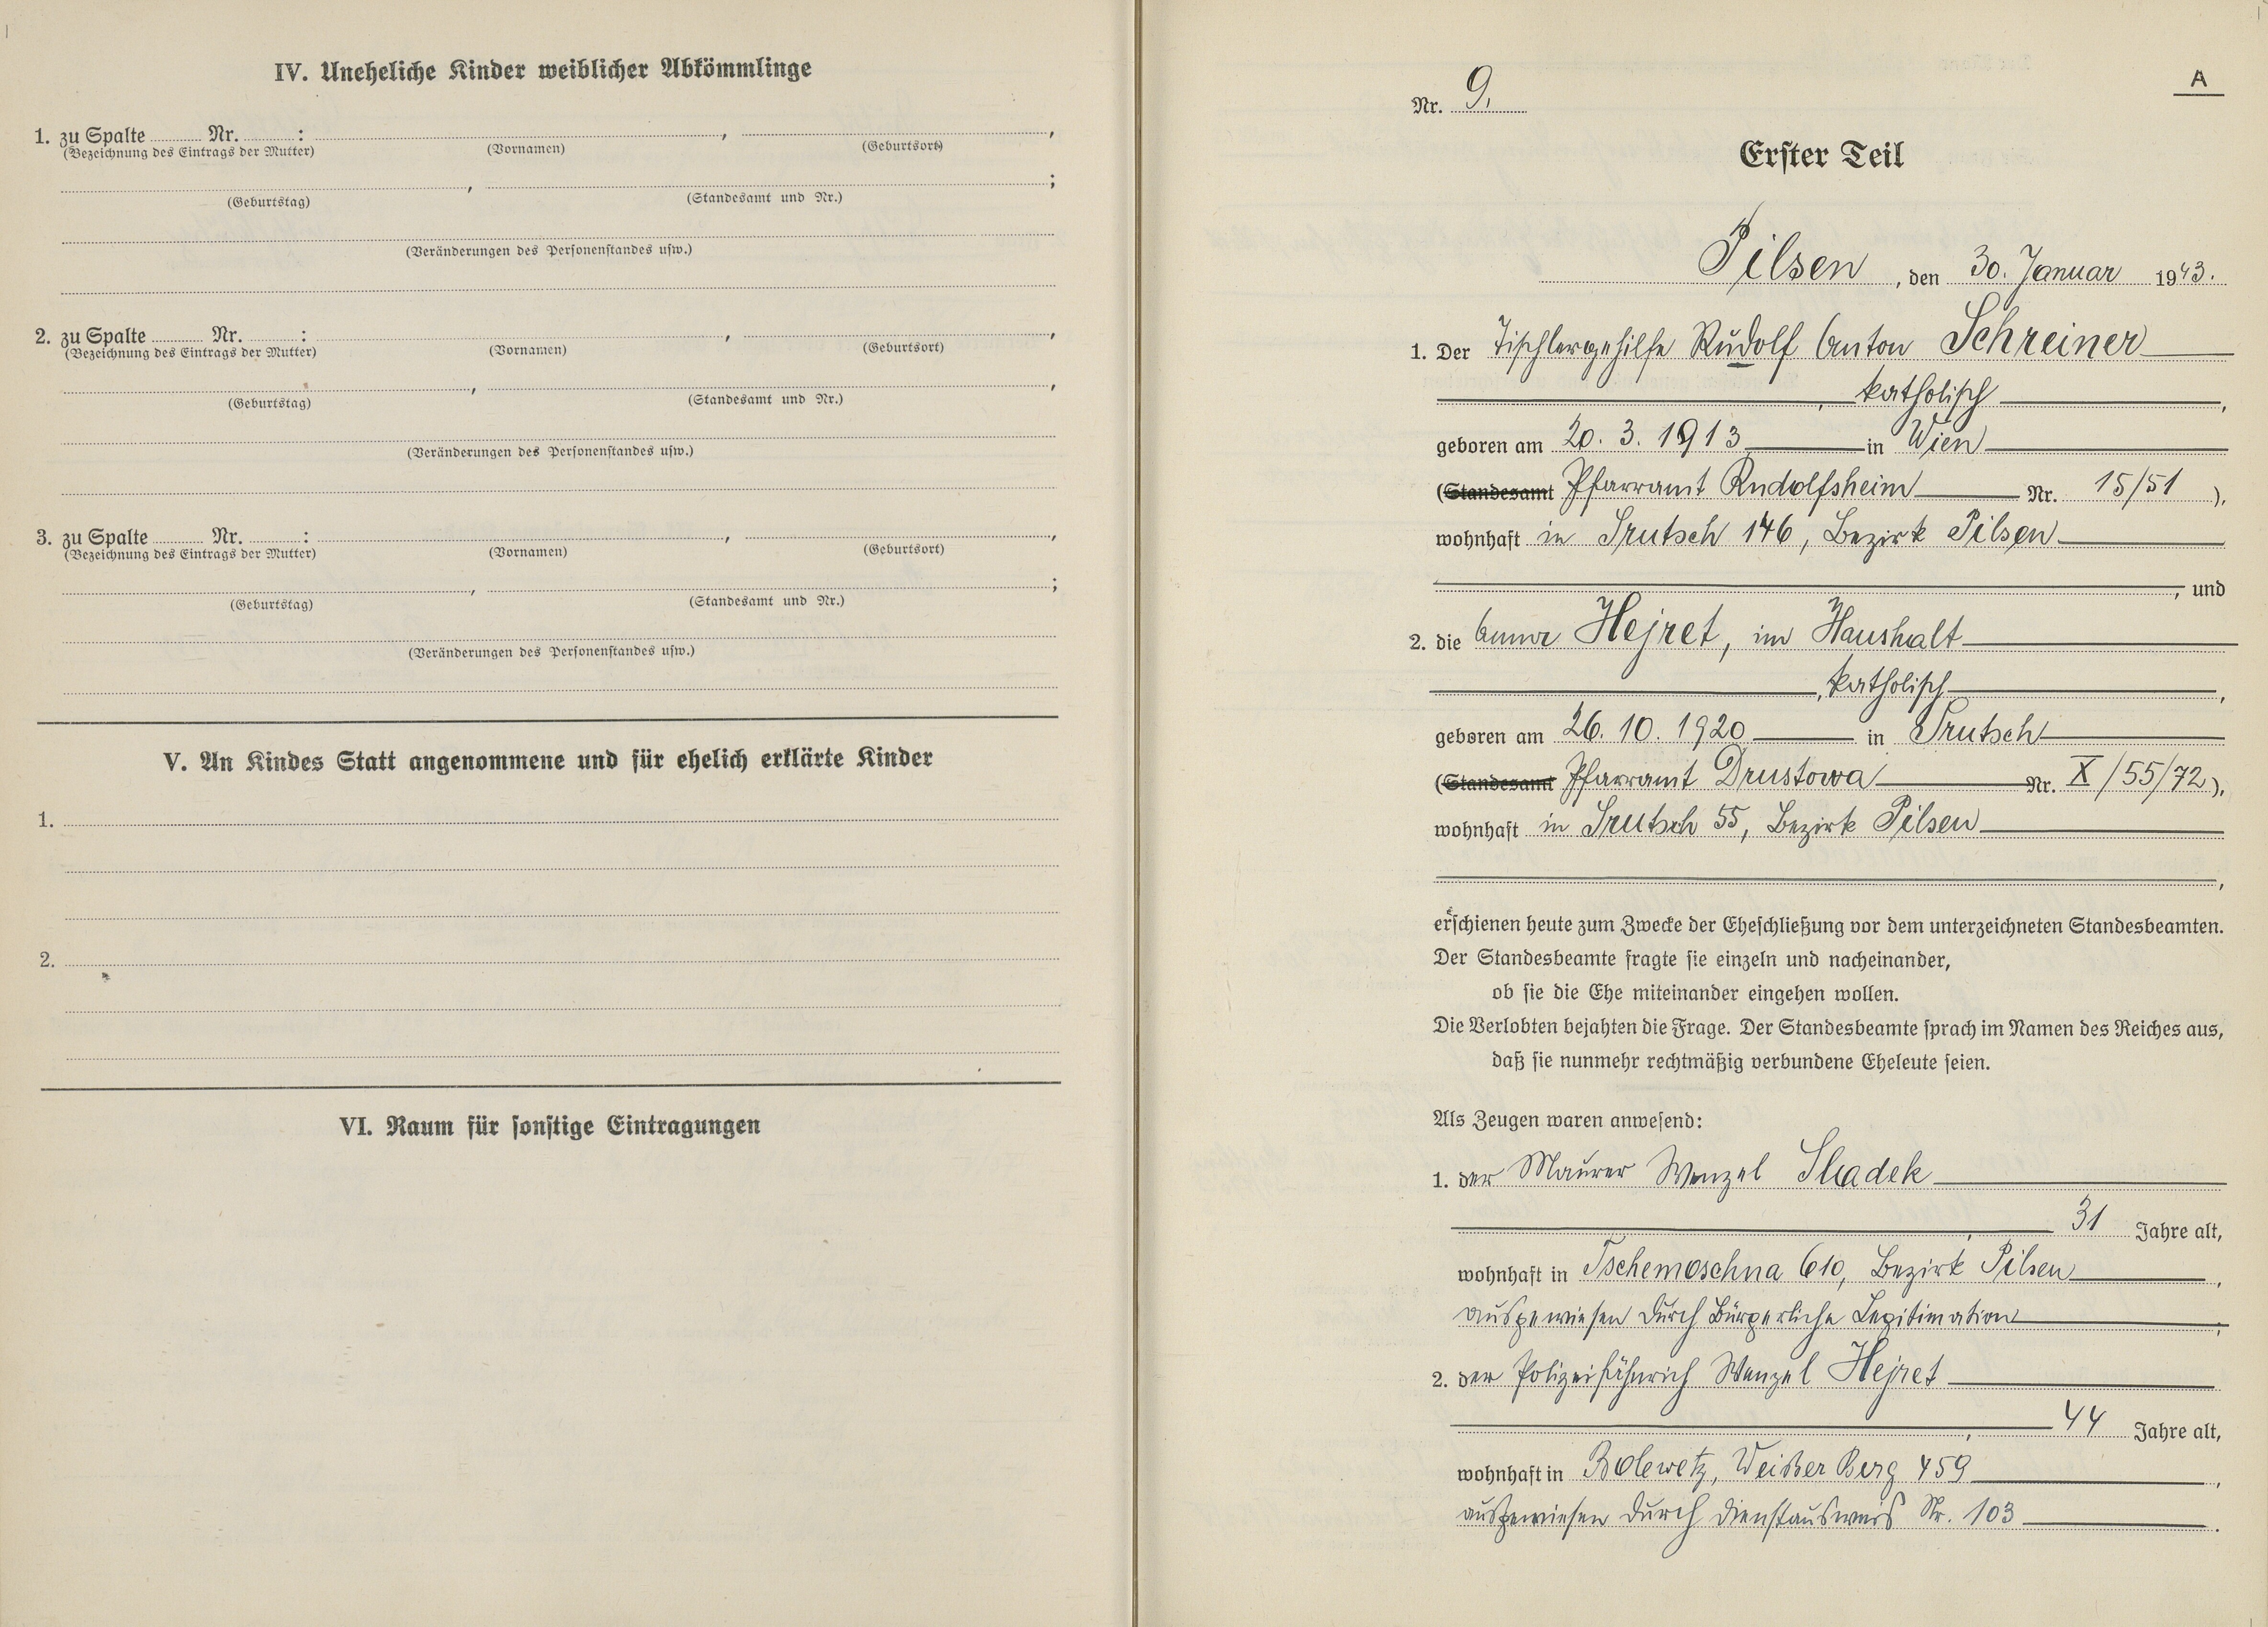 IV. Uneheliche Kinder weiblicher Abkömmlinge
1. zu Spalte ........ Nr. ........ : ........ , ........ ,
(Bezeichnung des Eintrags der Mutter) (Vornamen) (Geburtsort)
........ , ........ ;
(Geburtstag) (Standesamt und Nr.)
(Veränderungen des Personenstandes usw.)
2. zu Spalte ........ Nr. ........ : ........ , ........ ,
(Bezeichnung des Eintrags der Mutter) (Vornamen) (Geburtsort)
........ , ........ ,
(Geburtstag) (Standesamt und Nr.)
(Veränderungen des Personenstandes usw.)
3. zu Spalte ........ Nr. ........ : ........ , ........ ,
(Bezeichnung des Eintrags der Mutter) (Vornamen) (Geburtsort)
........ , ........ ;
(Geburtstag) (Standesamt und Nr.)
(Veränderungen des Personenstandes usw.)
V. An Kindes Statt angenommene und für ehelich erklärte Kinder
1.
2.
VI. Raum für sonstige Eintragungen
A
Nr. 9.
Erster Teil
Pilsen, den 30. Januar 1943.
1. Der Tischlergehilfe Rudolf Anton Schreiner
, katholisch ,
geboren am 20. 3. 1913 in Wien
(Standesamt Pfarramt Rudolfsheim Nr. 15/51 ),
wohnhaft in Trutsch 146, Bezirk Pilsen
, und
2. die Anna Hejret, im Haushalt
, katholisch ,
geboren am 26. 10. 1920 in Trutsch
(Standesamt Pfarramt Drustowa Nr. X/55/72 ),
wohnhaft in Trutsch 55, Bezirk Pilsen
,
erschienen heute zum Zwecke der Eheschließung vor dem unterzeichneten Standesbeamten.
Der Standesbeamte fragte sie einzeln und nacheinander,
ob sie die Ehe miteinander eingehen wollen.
Die Verlobten bejahten die Frage. Der Standesbeamte sprach im Namen des Reiches aus,
daß sie nunmehr rechtmäßig verbundene Eheleute seien.
Als Zeugen waren anwesend:
1. der Maurer Wenzel Sladek
, 31 Jahre alt,
wohnhaft in Tschemoschna 610, Bezirk Pilsen ,
ausgewiesen durch Bürgerliche Legitimation ;
2. der Polizeifähnrich Wenzel Hejret
, 44 Jahre alt,
wohnhaft in Bolewetz, Weißer Berg 459 ,
ausgewiesen durch Dienstausweis Nr. 103 .